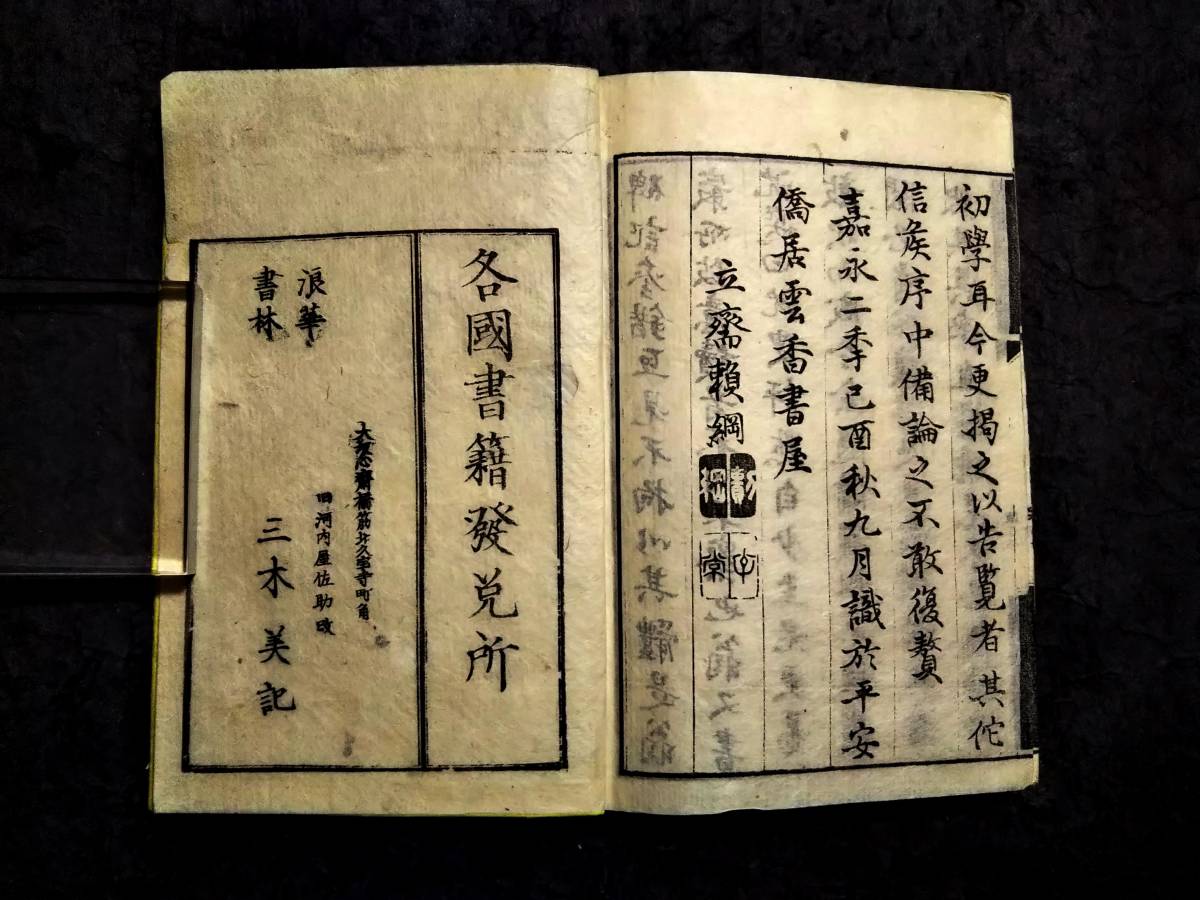 初學耳今更揭之以告覧者其佗
信矦序中備論之不敢復贅
嘉永二季己酉秋九月識於平安
僑居雲香書屋
立齋賴綱
各國書籍發兌所
大阪心齋橋筋北久宝寺町角
旧河内屋佐助改
三木美記
浪華
書林